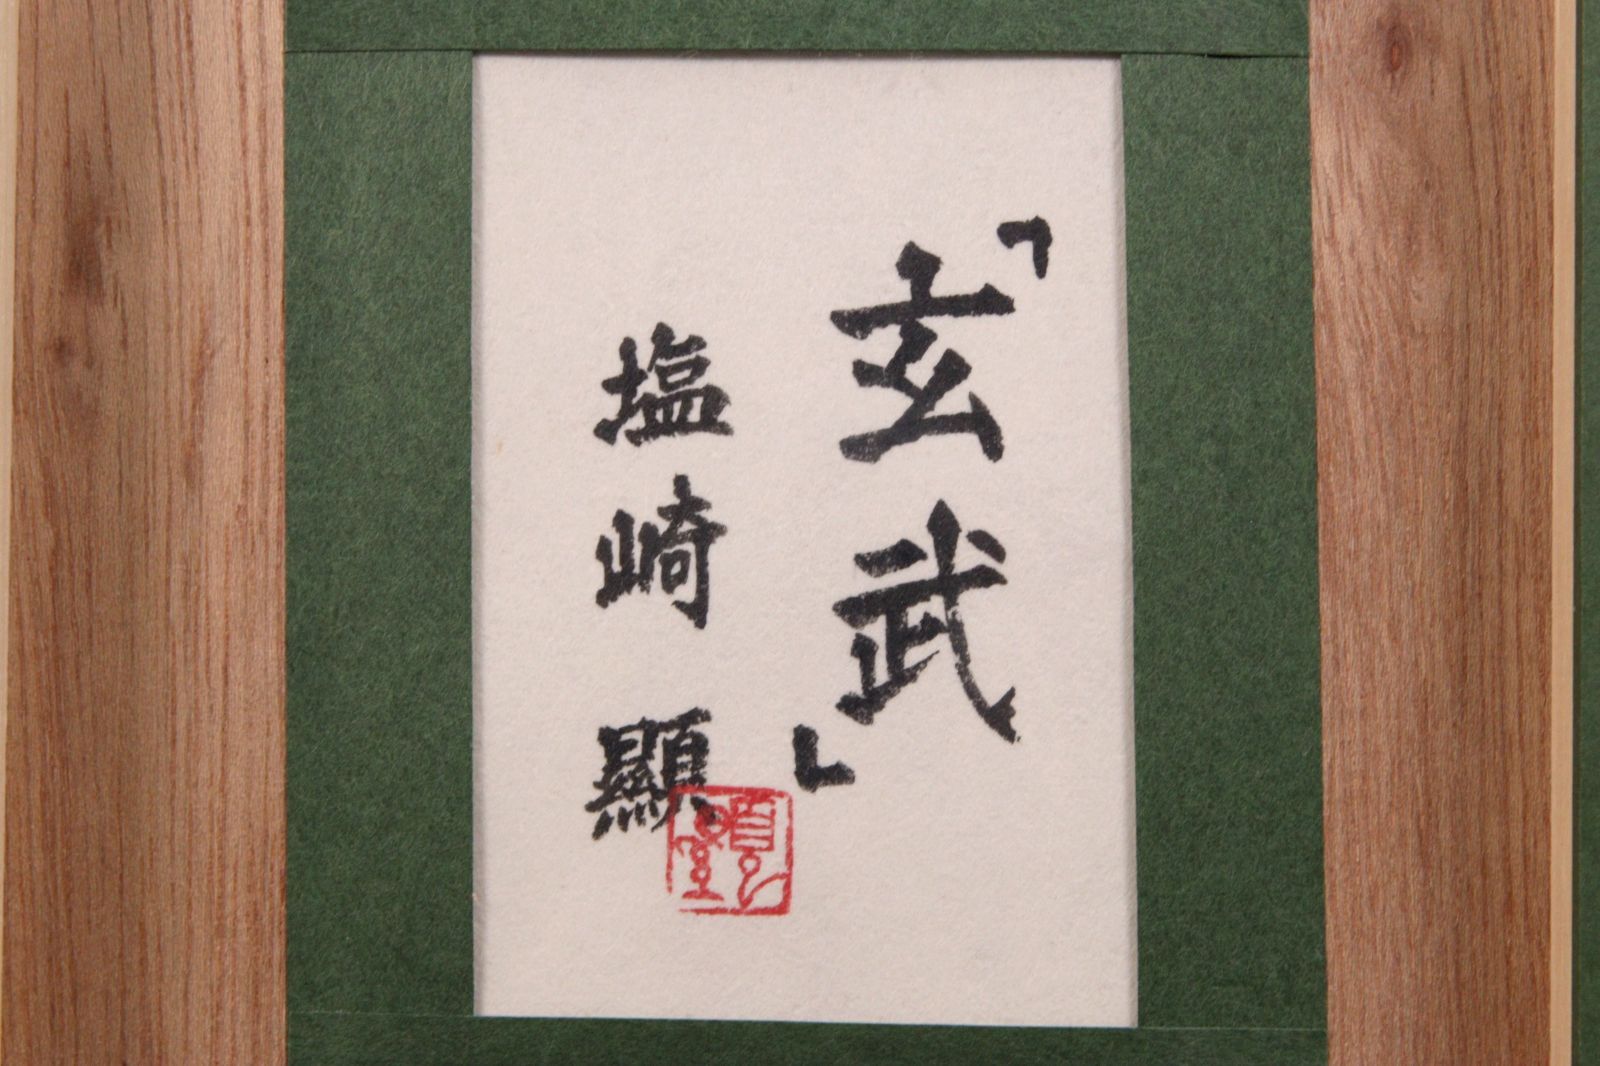 「玄武」
塩崎顯